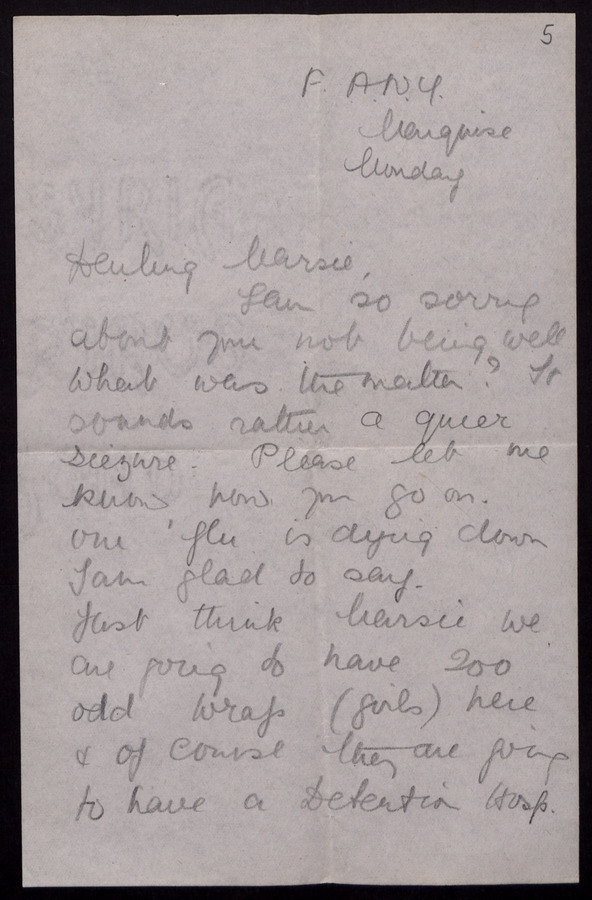 5
F. A.N.Y.
Marquise
Monday
Darling Marsie,
I am so sorry
about you not being well
What was the matter? It
sounds rather a queer
siezure. Please let me
know how you go on.
our 'flu is dying down
I am glad to say.
Just think Marsie we
are going to have 200
odd Wrafs (girls) here
& of course they are going
to have a Detention Hosp.